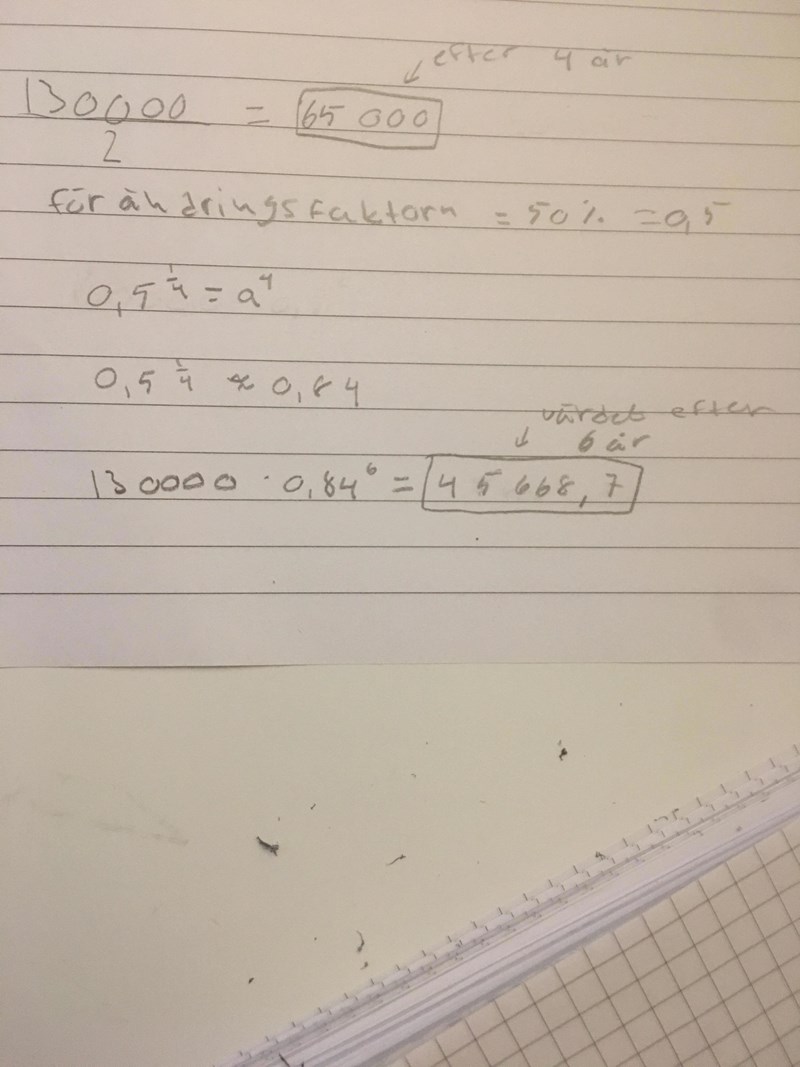 efter 4 år
130000 / 2 = 65 000
förähdringsfaktorn = 50% = 0,5
0,5^1/4 = a^4
0,5^1/4 ≈ 0,84
värdet efter
6 år
130000 · 0,84^6 = 45 668,7